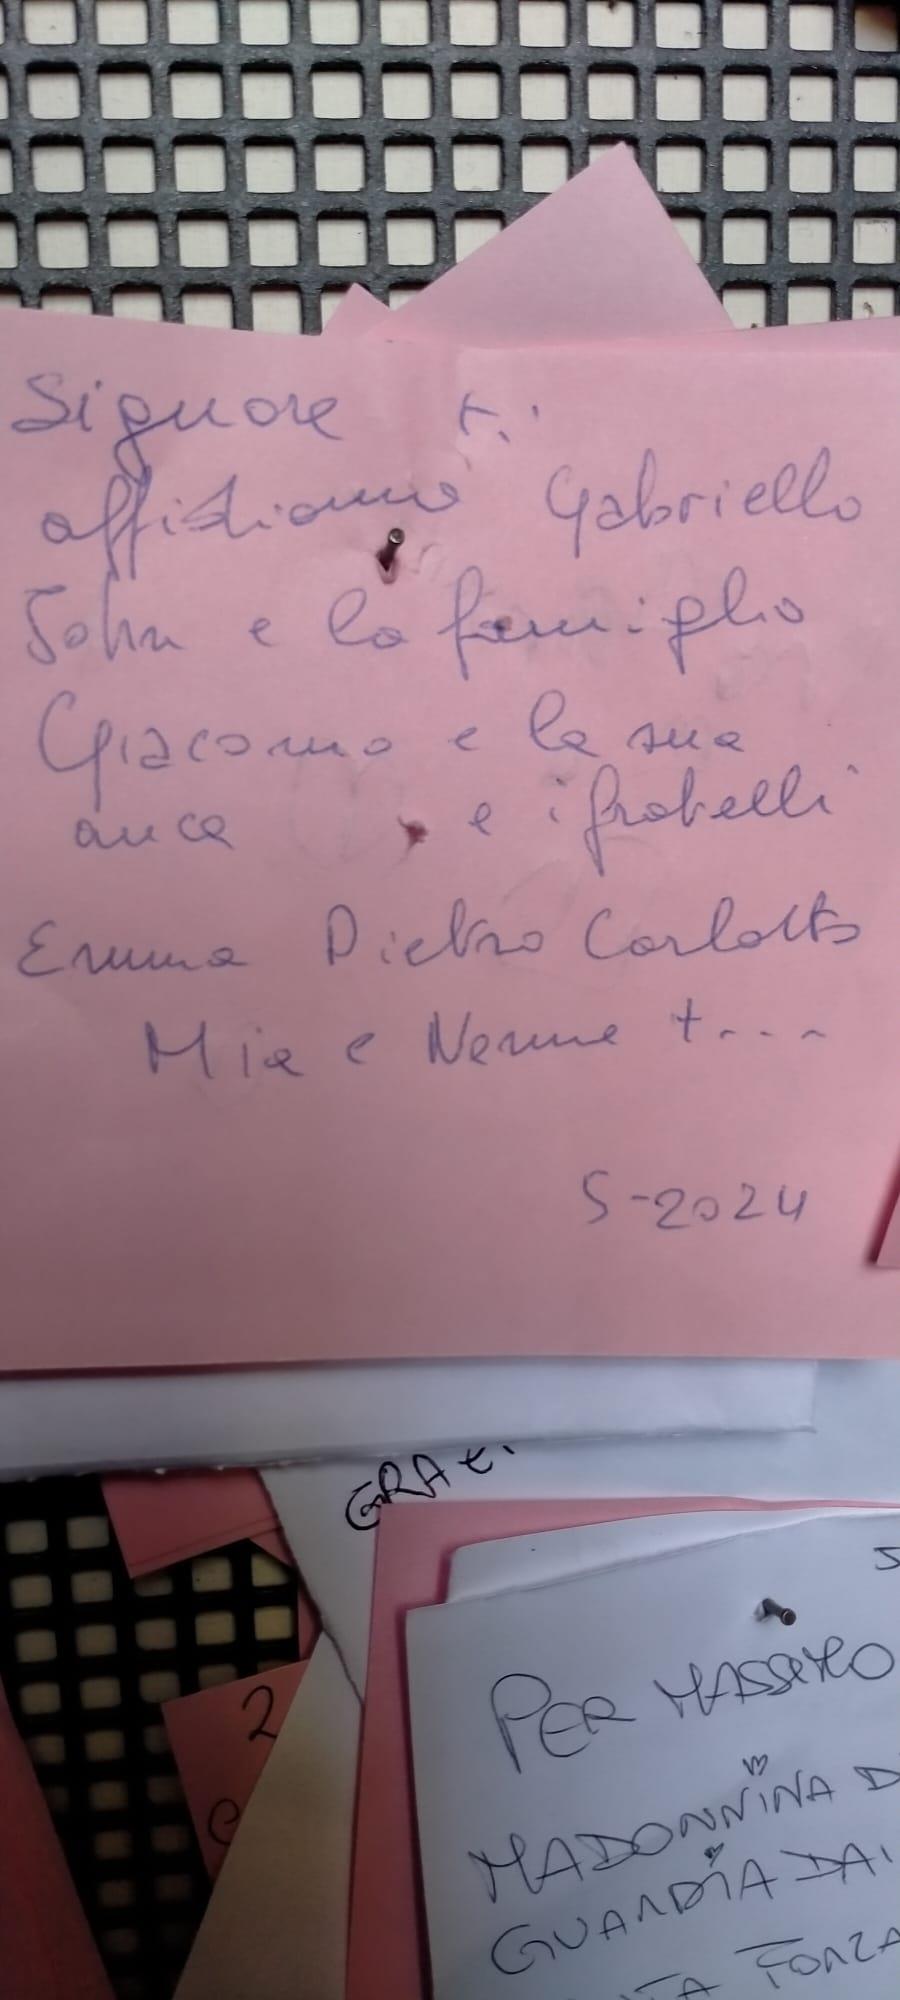 Signore ti
affidiamo Gabriella
John e la famiglia
Giacomo e la sua
anca e i fratelli
Emma Pietro Carlotta
Mia e Nenne + ...
5-2024
GRAZ
2
PER MASSIMO
MADONNINA D
GUARDIA DAI
TA FORZA